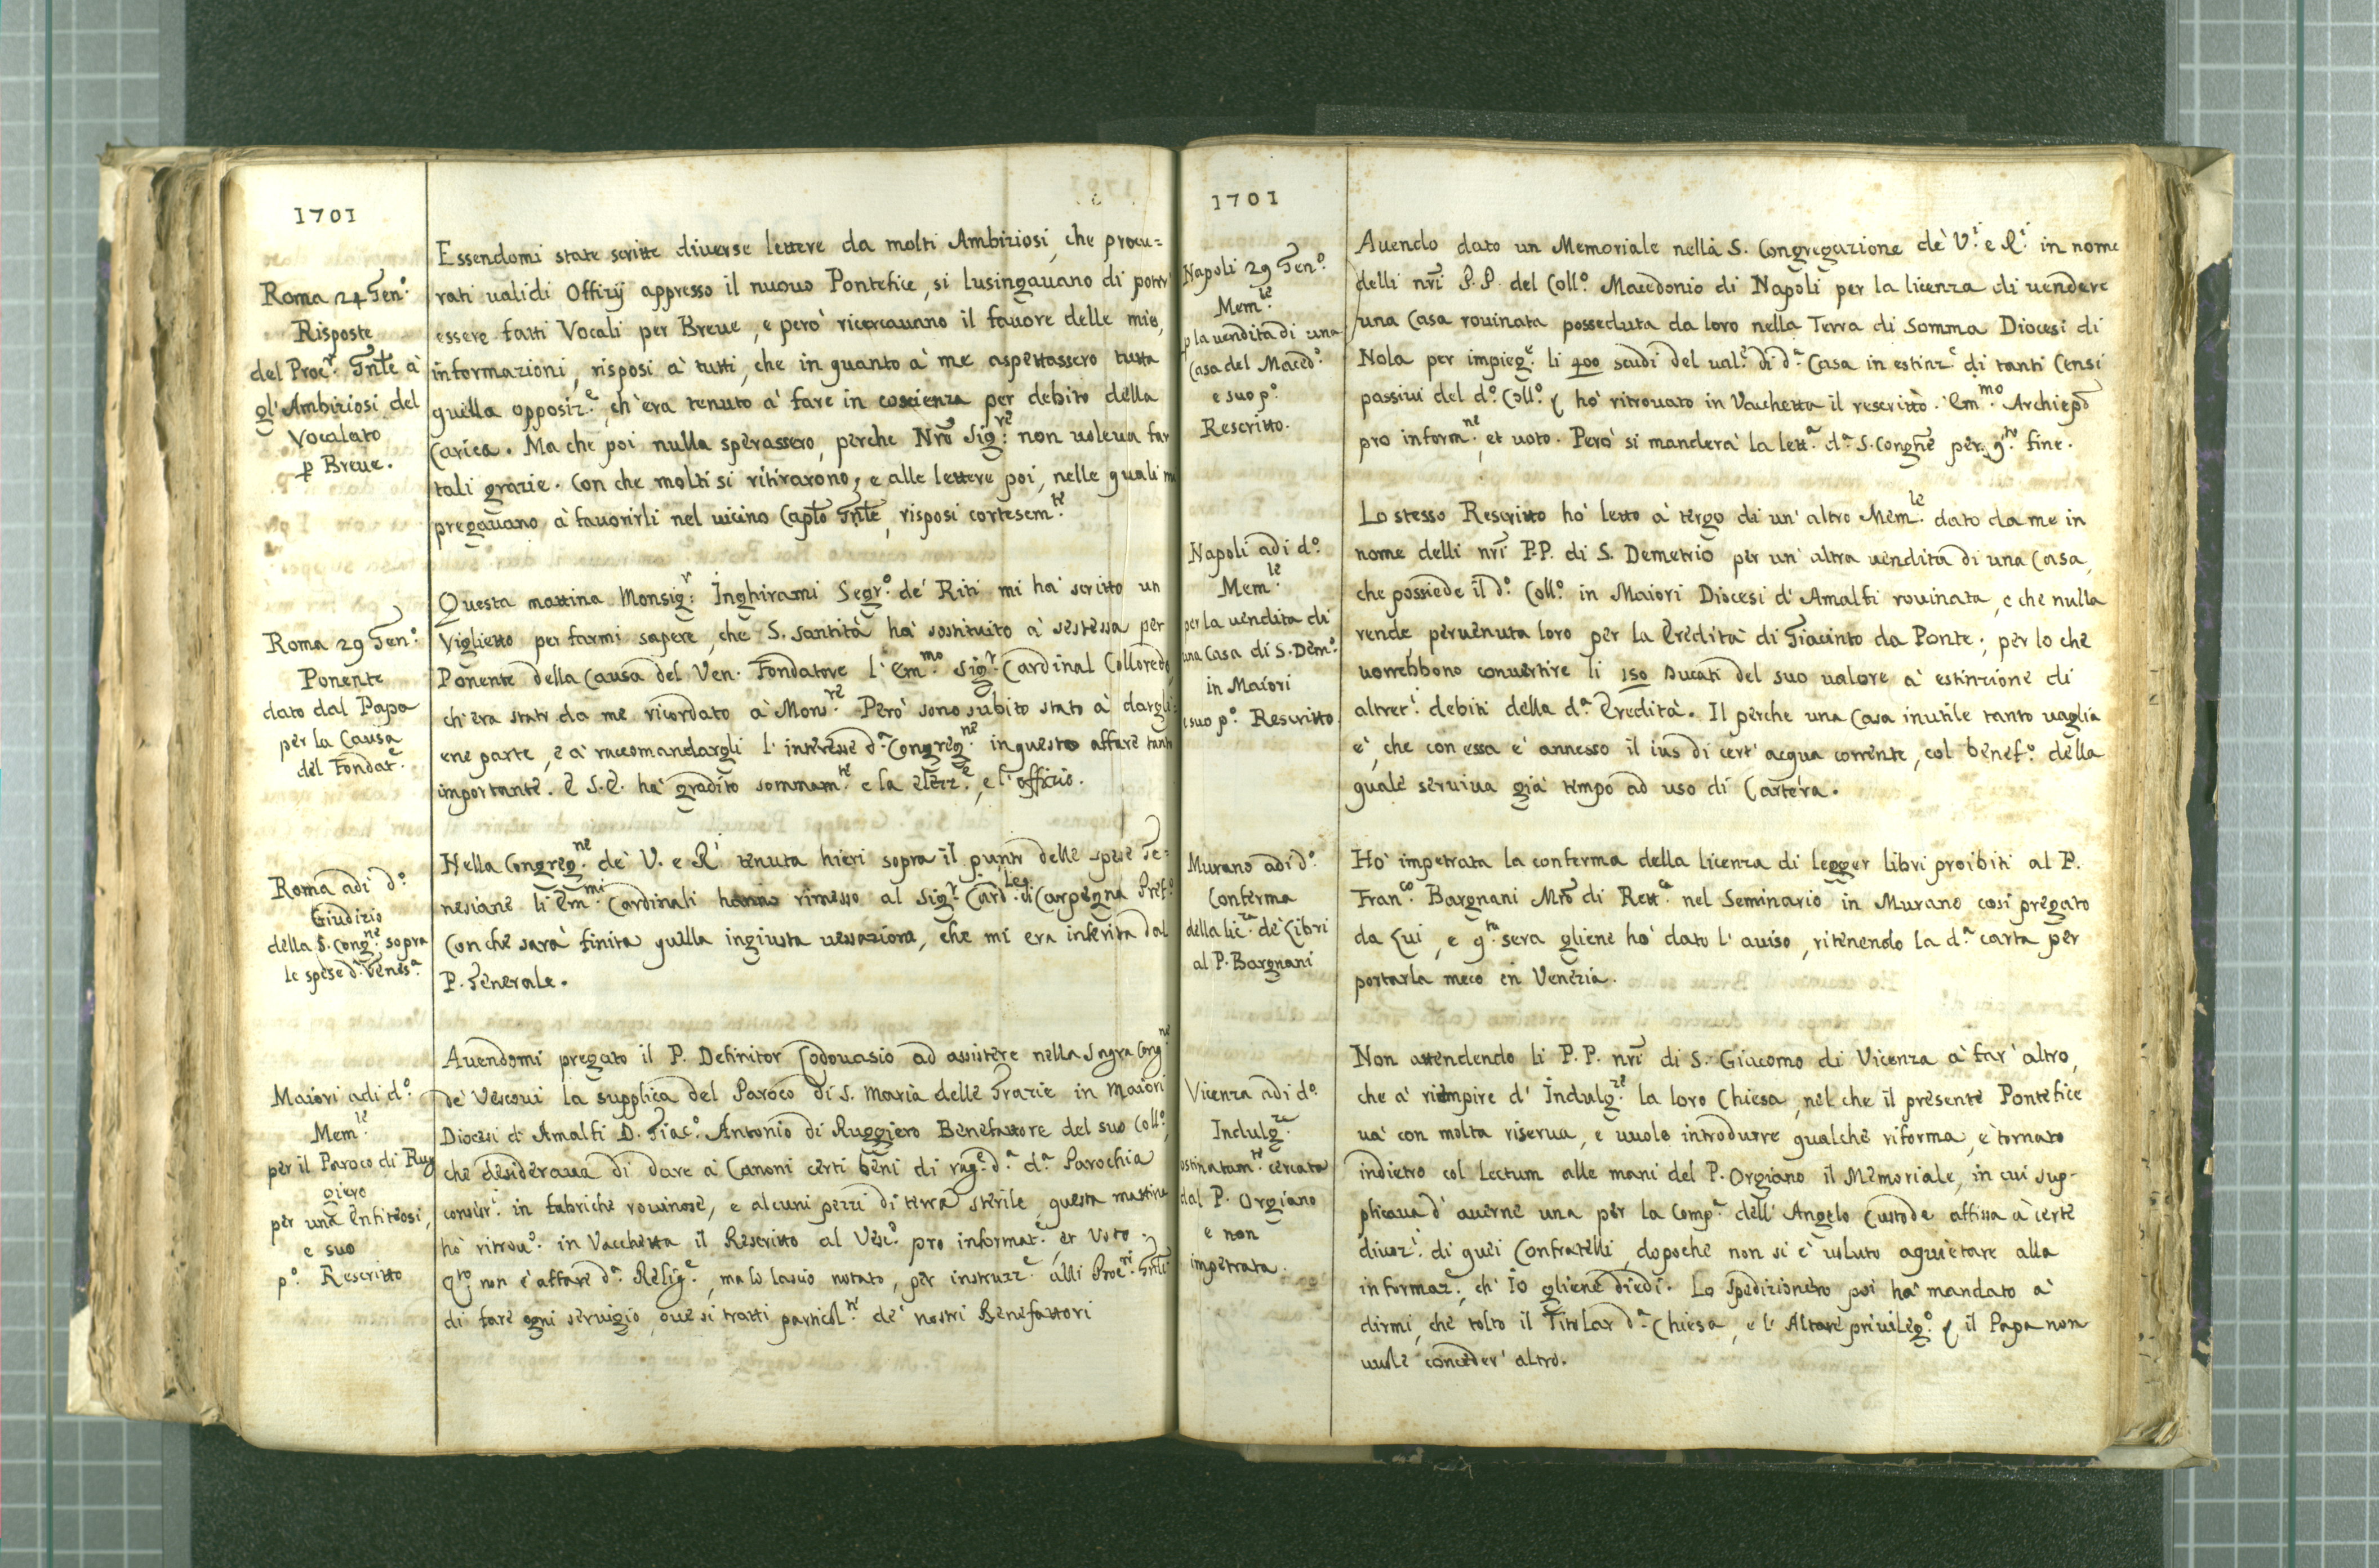 1701
Roma 24 Gen.º
Risposte
del Proc.r Gnle à
gl'Ambiziosi del
Vocalato
p Breue.
Essendomi state scritte diuerse lettere da molti Ambiziosi, che procu=
rati ualidi Offizij appresso il nuouo Pontefice, si lusingauano di poter
essere fatti Vocali per Breue, e però ricercauano il fauore delle mie
informazioni, risposi à tutti, che in quanto à me aspettassero tutta
quella opposiz.e, ch'era tenuto à fare in coscienza per debito della
Carica. Ma che poi nulla sperassero, perche Nrō Sig.re non uoleua far
tali grazie. Con che molti si ritirarono; e alle lettere poi, nelle quali
pregauano à fauorirli nel uicino Capto Gnle, risposi cortesem.te
Roma 29 Gen.º
Ponente
dato dal Papa
per la Causa
del Fondat.e
Questa mattina Monsig.r Inghirami Segr.º de' Riti mi hà scritto un
Viglietto per farmi sapere, che S. Santità hà sostituito à sestessa per
Ponente della Causa del Ven. Fondatore l'Em.mo Sig.r Cardinal Colloredo
ch'era stato da me ricordato à Mons.re Però sono subito stato à dargli=
ene parte, e à raccomandargli l'interesse d.a Congreg.ne in questo affare tanto
importante. E S.E. hà gradito sommam.te e la elezz.e, e l'officio.
Roma adi d.º
Giudizio
della S. Cong.ne sopra
le spese d. Genes.a
Nella Congreg.ne de' V. e R.i tenuta hieri sopra il punto delle spese Ge=
nesiane li Em.mi Cardinali hanno rimesso al Sig.r Card.le di Carpegna Pref.º
Con che sarà finita quella ingiusta uessazione, che mi era inferita dal
P. Generale.
Maiori adi d.º
Mem.le
per il Paroco di Rug
giero
per una Enfiteosi,
e suo
p.º Rescritto
Auendomi pregato il P. Definitor Codouasio ad assistere nella Sagra Cong.ne
de' Vescoui la supplica del Paroco di S. Maria delle Grazie in Maiori
Diocesi di Amalfi D. Giac.º Antonio di Ruggiero Benefattore del suo Coll.º,
che desideraua di dare à Canoni certi beni di rag.e d.a d.a Parochia
consist.i in fabriche rouinose, e alcuni pezzi di terra sterile, questa mattina
hò ritrou.º in Vacchetta il Rescritto al Vesc.º pro informat.e et Voto.
Q.to non è affare d.a Relig.e, ma lo lascio notato, per instruzz.e alli Proc.ri Gnli
di fare ogni seruigio, oue si tratti particol.te de' nostri Benefattori
1701
Napoli 29 Gen.º
Mem.le
p la uendita di una
Casa del Maced.º
e suo p.º
Rescritto.
Auendo dato un Memoriale nella S. Congregazione de' V.i e R.i in nome
delli nrī P.P. del Coll.º Macedonio di Napoli per la licenza di uendere
una Casa rouinata posseduta da loro nella Terra di Somma Diocesi di
Nola per impieg.e li 400 scudi del ual.e di d.a Casa in estinz.e di tanti Censi
passiui del d.º Coll.º hò ritrouato in Vacchetta il rescritto. Em.mo Archiepō
pro inform.ne, et uoto. Però si manderà la lett.a d.a S. Congne per q.to fine.
Napoli adi d.º
Mem.le
per la uendita di
una Casa di S. Dem.º
in Maiori
e suo p.º Rescritto
Lo stesso Rescritto hò letto à tergo di un'altro Mem.le dato da me in
nome delli nrī P.P. di S. Demetrio per un'altra uendita di una Casa,
che possiede il d.º Coll.º in Maiori Diocesi d'Amalfi rouinata, e che nulla
rende, peruenuta loro per la Eredità di Giacinto da Ponte; per lo che
uorrebbono conuertire li 150 Ducati del suo ualore à estinzione di
altret.i debiti della d.a Eredità. Il perche una Casa inutile tanto uaglia
è, che con essa è annesso il ius di cert'acqua corrente, col benef.º della
quale seruiua già tempo ad uso di Cartera.
Murano adi d.º
Conferma
della lic.za de' Libri
al P. Bargnani
Hò impetrata la conferma della licenza di legger libri proibiti al P.
Fran.co Bargnani Mrō di Rett.a nel Seminario in Murano così pregato
da Lui, e q.ta sera gliene hò dato l'auiso, ritenendo la d.a carta per
portarla meco in Venezia.
Vicenza adi d.º
Indulg.za
ostinatam.te cercata
dal P. Orgiano
e non
impetrata.
Non attendendo li P.P. nrī di S. Giacomo di Vicenza à far'altro,
che à riempire d'Indulg.ze la loro Chiesa, nel che il presente Pontefice
uà con molta riserua, e uuole introdurre qualche riforma, è tornato
indietro col Lectum alle mani del P. Orgiano il Memoriale, in cui sup-
plicaua d'auerne una per la Comp.a dell'Angelo Custode affissa à certe
diuoz.i di quei Confratelli, dopoche non si è uoluto aquietare alla
informaz.e, ch'io gliene diedi. Lo Spedizioniero poi hà mandato à
dirmi, che tolto il Titolar d.a Chiesa, e l'Altare priuileg.º il Papa non
uuole conceder'altro.